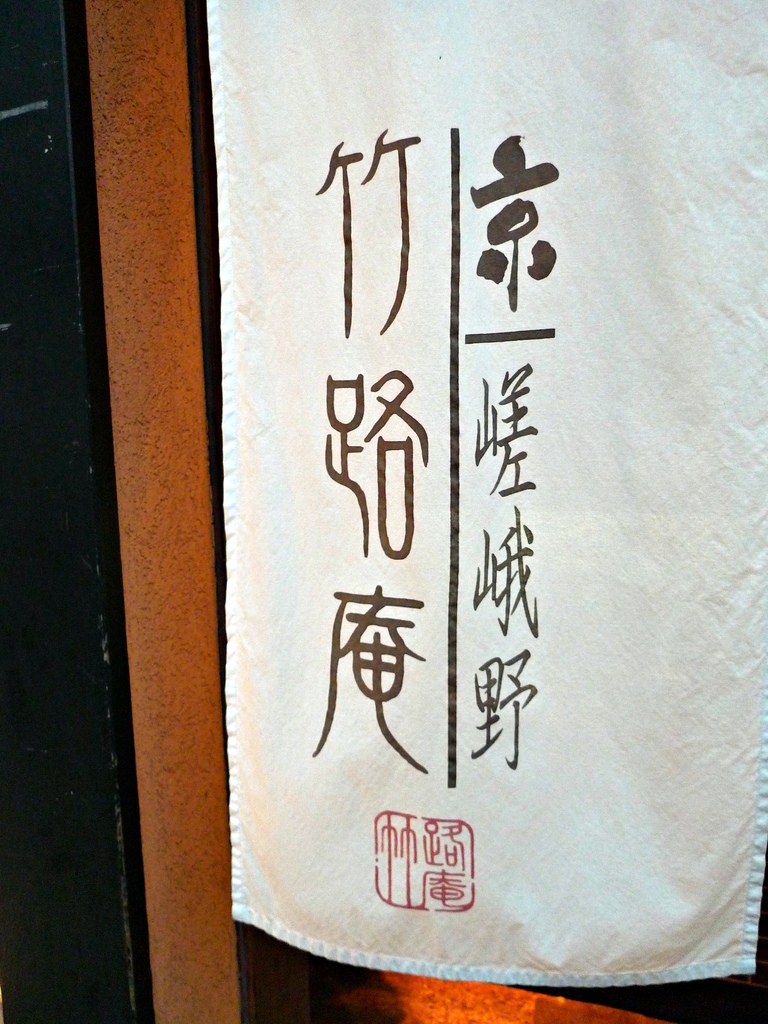 京
嵯峨野
竹路庵
竹路庵